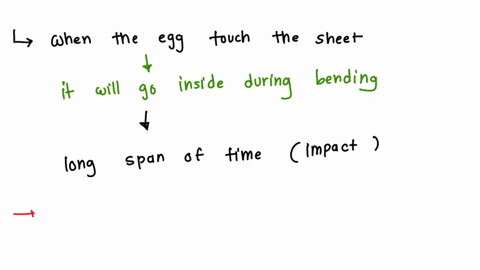 ↳ when the egg touch the sheet
↓
it will go inside during bending
↓
long span of time (impact)
→